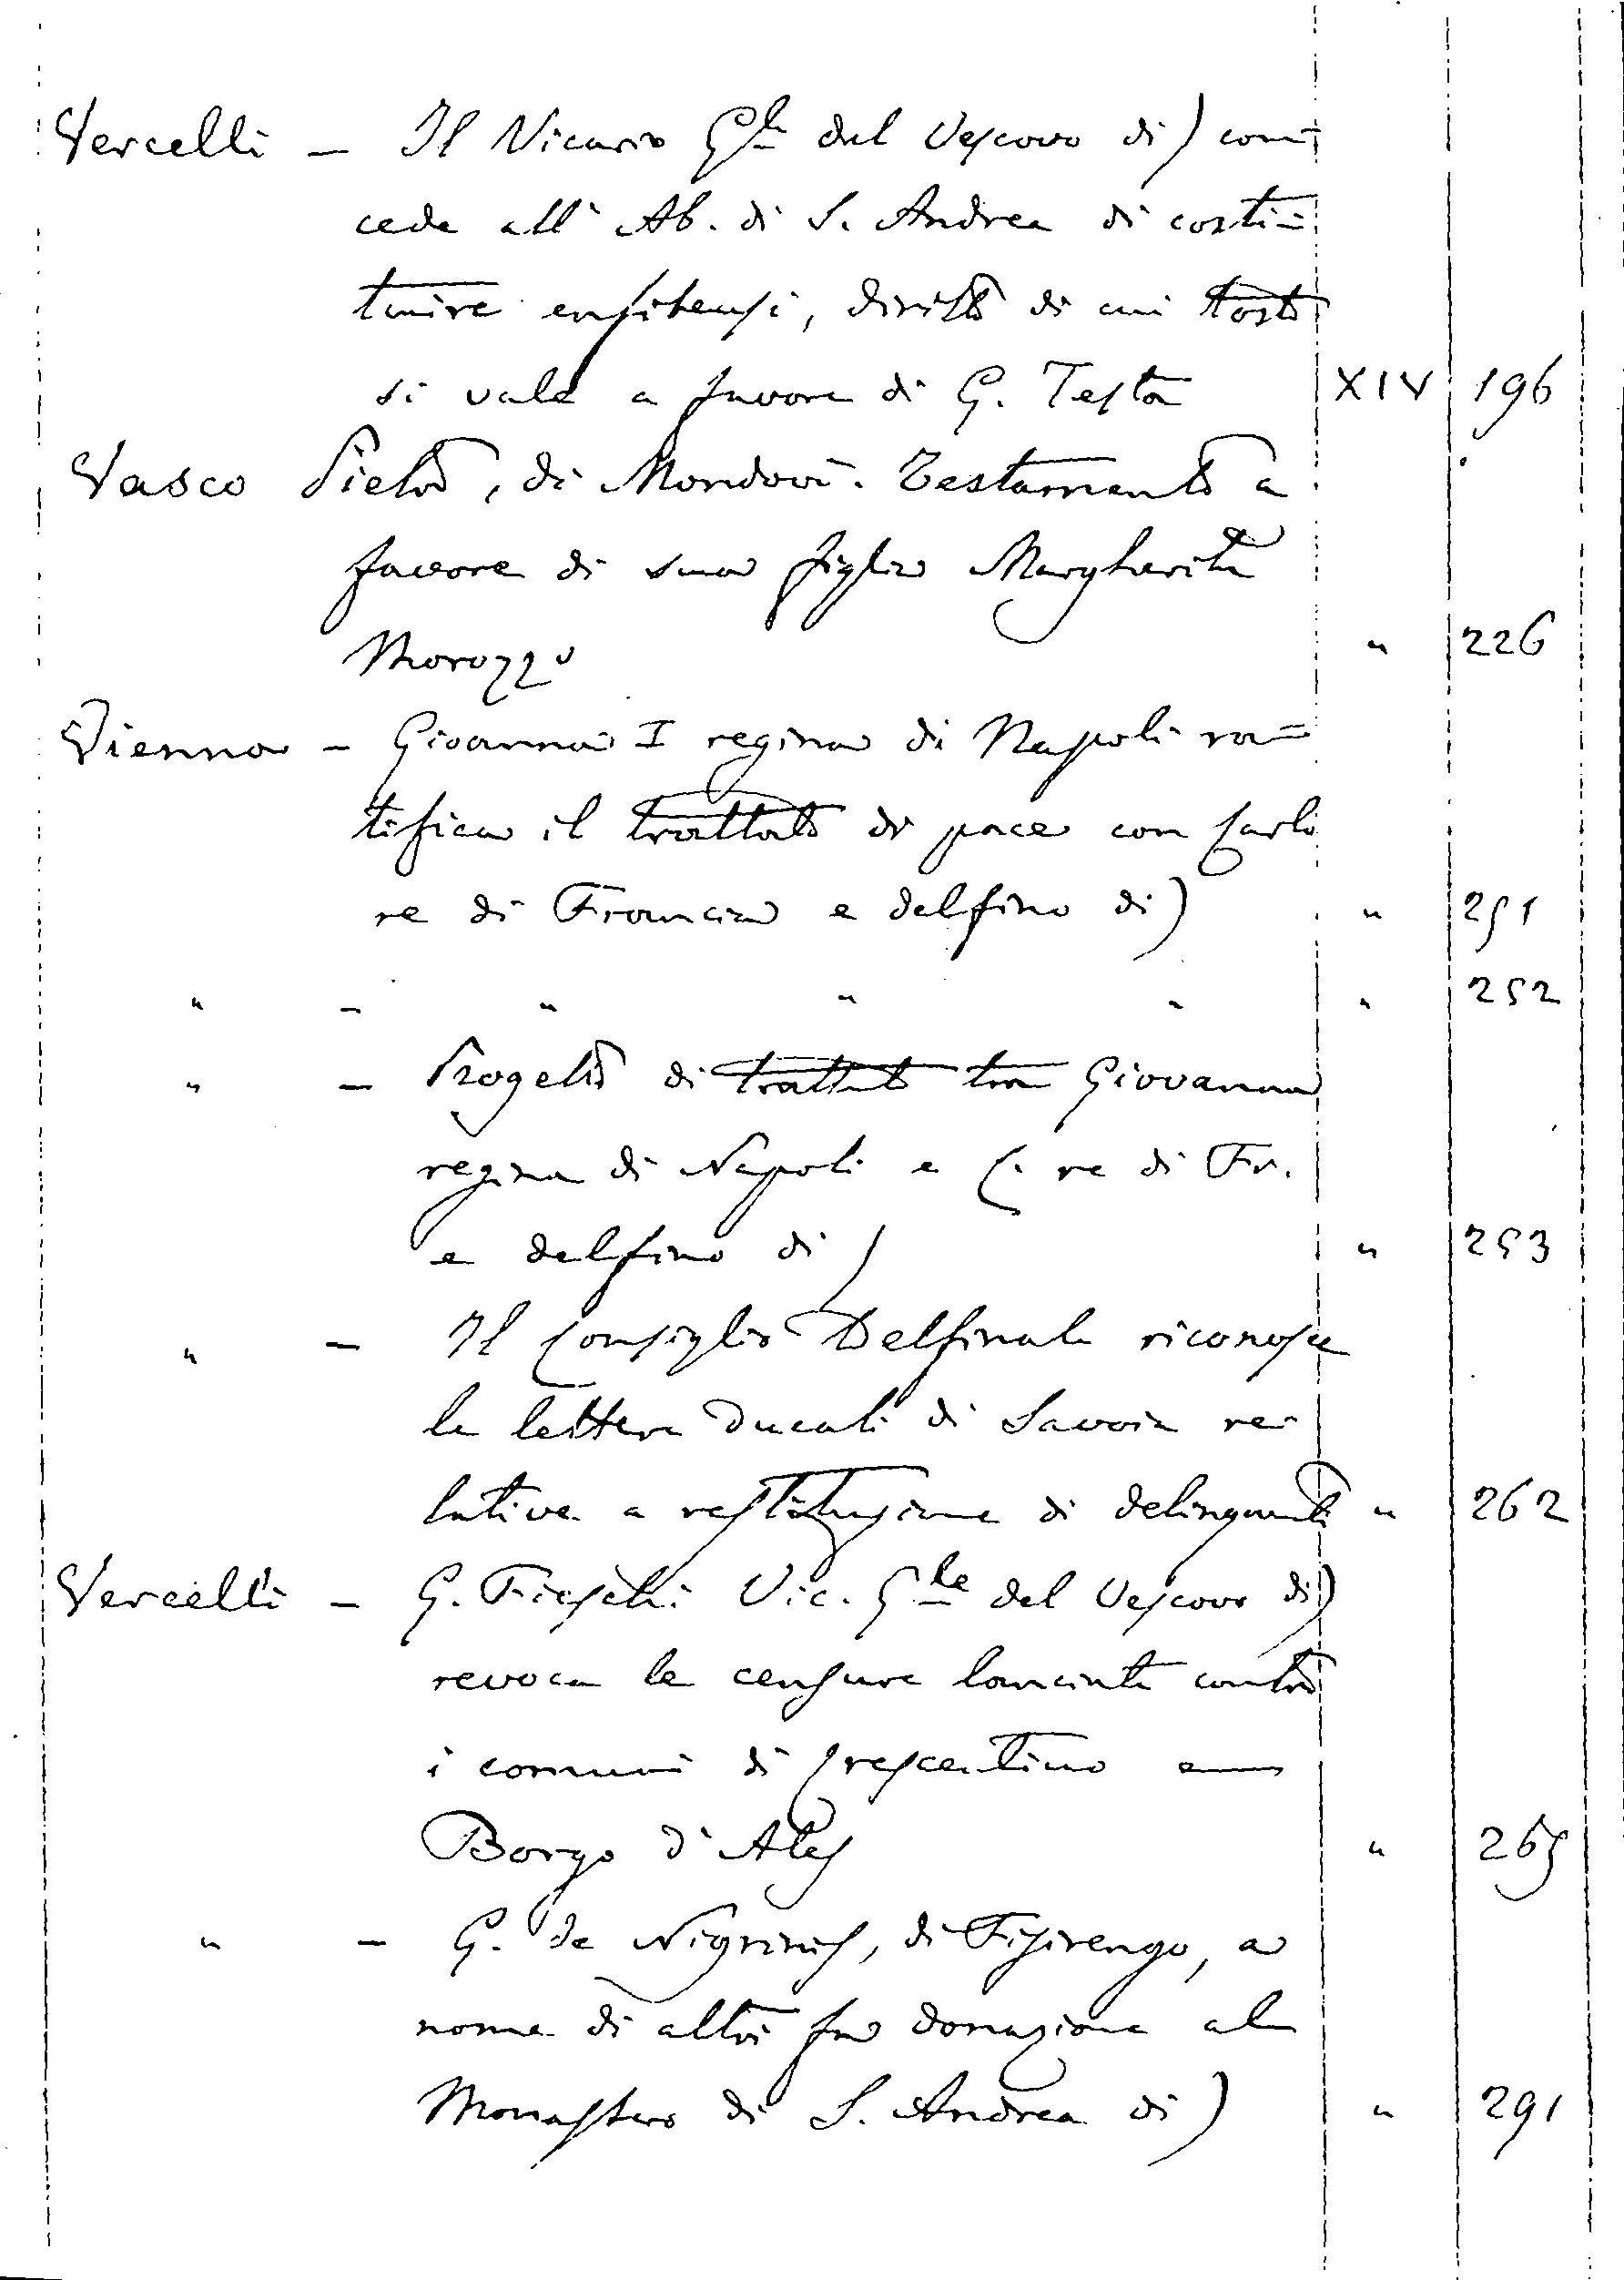 Vercelli — Il Vicario G.le del Vescovo di) con=
cede all'Ab. di S. Andrea di costi=
tuire enfiteusi, diritto di cui tosto
si vale a favore di G. Testa XIV 196
Vasco Pietro, di Mondovì. Testamento a
favore di sua figlia Margherita
Morozzo " 226
Vienna — Giovanna I regina di Napoli ra=
tifica il trattato di pace con Carlo
re di Francia e delfino di) " 251
" — " " " " 252
" — Progetto di trattato tra Giovanna
regina di Napoli e C. re di Fr.
e delfino di) " 253
" — Il Consiglio Delfinale riconosce
le lettere Ducali di Savoia re-
lative a restituzione di delinquenti " 262
Vercelli — G. Fieschi Vic. G.le del Vescovo di)
revoca le censure lanciate contro
i comuni di Crescentino e
Borgo d'Ales " 265
" — G. de Nigrinis, di Fisirengo, a
nome di altri fa donazione al
Monastero di S. Andrea di) " 291